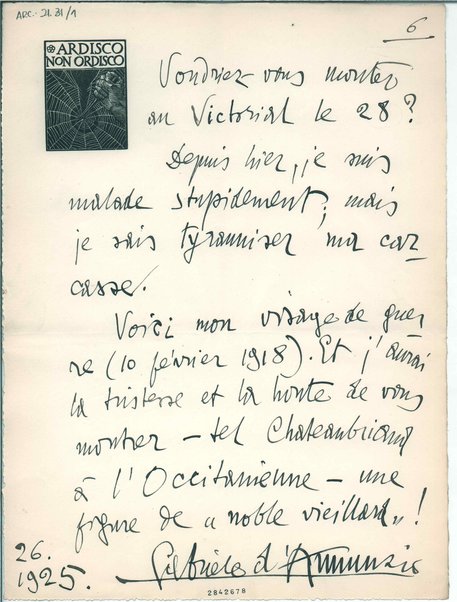 ARC.- 21. 31/1
6
ARDISCO
NON ORDISCO
Voudriez-vous monter
au Victorial le 28 ?
Depuis hier, je suis
malade stupidement ; mais
je sais tyranniser ma car-
casse.
Voici mon visage de guer-
re (10 février 1918). Et j'aurai
la tristesse et la honte de vous
montrer – tel Chateaubriand
à l'Occitanienne – une
figure de « noble vieillard » !
26.
1925.
Gabriele d'Annunzio
2842678